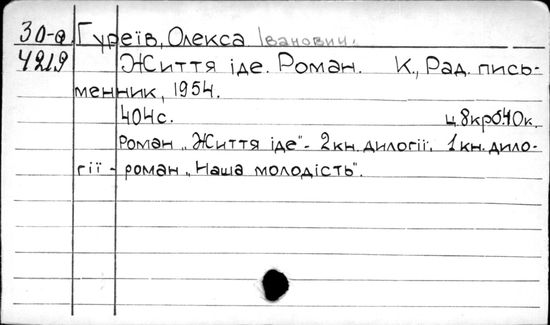 30-а Гуреїв, Олекса Іванович.
4219 Життя іде. Роман. К., Рад. пись-
менник, 1954.
404с. ц. 8крб40к.
Роман „Життя іде"- 2кн. дилогії. 1кн. дило-
гії - роман „Наша молодість".